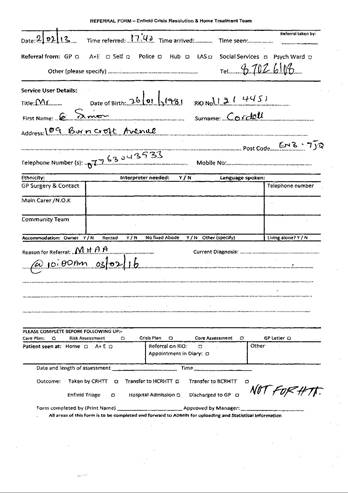 REFERRAL FORM – Enfield Crisis Resolution & Home Treatment Team
Referral taken by:
Date: 2/02/13 Time referred: 17:42 Time arrived: Time seen:
Referral from: GP □ A+E □ Self □ Police □ Hub □ LAS □ Social Services □ Psych Ward □
Other (please specify) Tel. 8702 6108
Service User Details:
Title: Mr Date of Birth: 26/01/1981 RIO No 1214451
First Name: Simon Surname: Cordell
Address: 109 Burncroft Avenue
Post Code EN3 - 7JQ
Telephone Number (s): 07763043533 Mobile No:
Ethnicity: Interpreter needed: Y / N Language spoken:
GP Surgery & Contact Telephone number
Main Carer /N.O.K
Community Team
Accommodation: Owner Y / N Rented Y / N No fixed Abode Y / N Other (specify) Living alone? Y / N
Reason for Referral: MHAA Current Diagnosis:
@ 10:00am 03/02/16
PLEASE COMPLETE BEFORE FOLLOWING UP:-
Care Plan: □ Risk Assessment □ Crisis Plan □ Core Assessment □ GP Letter □
Patient seen at: Home □ A+E □ Referral on RIO: □ Other
Appointment in Diary: □
Date and length of assessment Time
Outcome: Taken by CRHTT □ Transfer to HCRHTT □ Transfer to BCRHTT □
NOT FOR HTT.
Enfield Triage □ Hospital Admission □ Discharged to GP □
Form completed by (Print Name) Approved by Manager:
All areas of this form is to be completed and forward to ADMIN for uploading and Statistical information